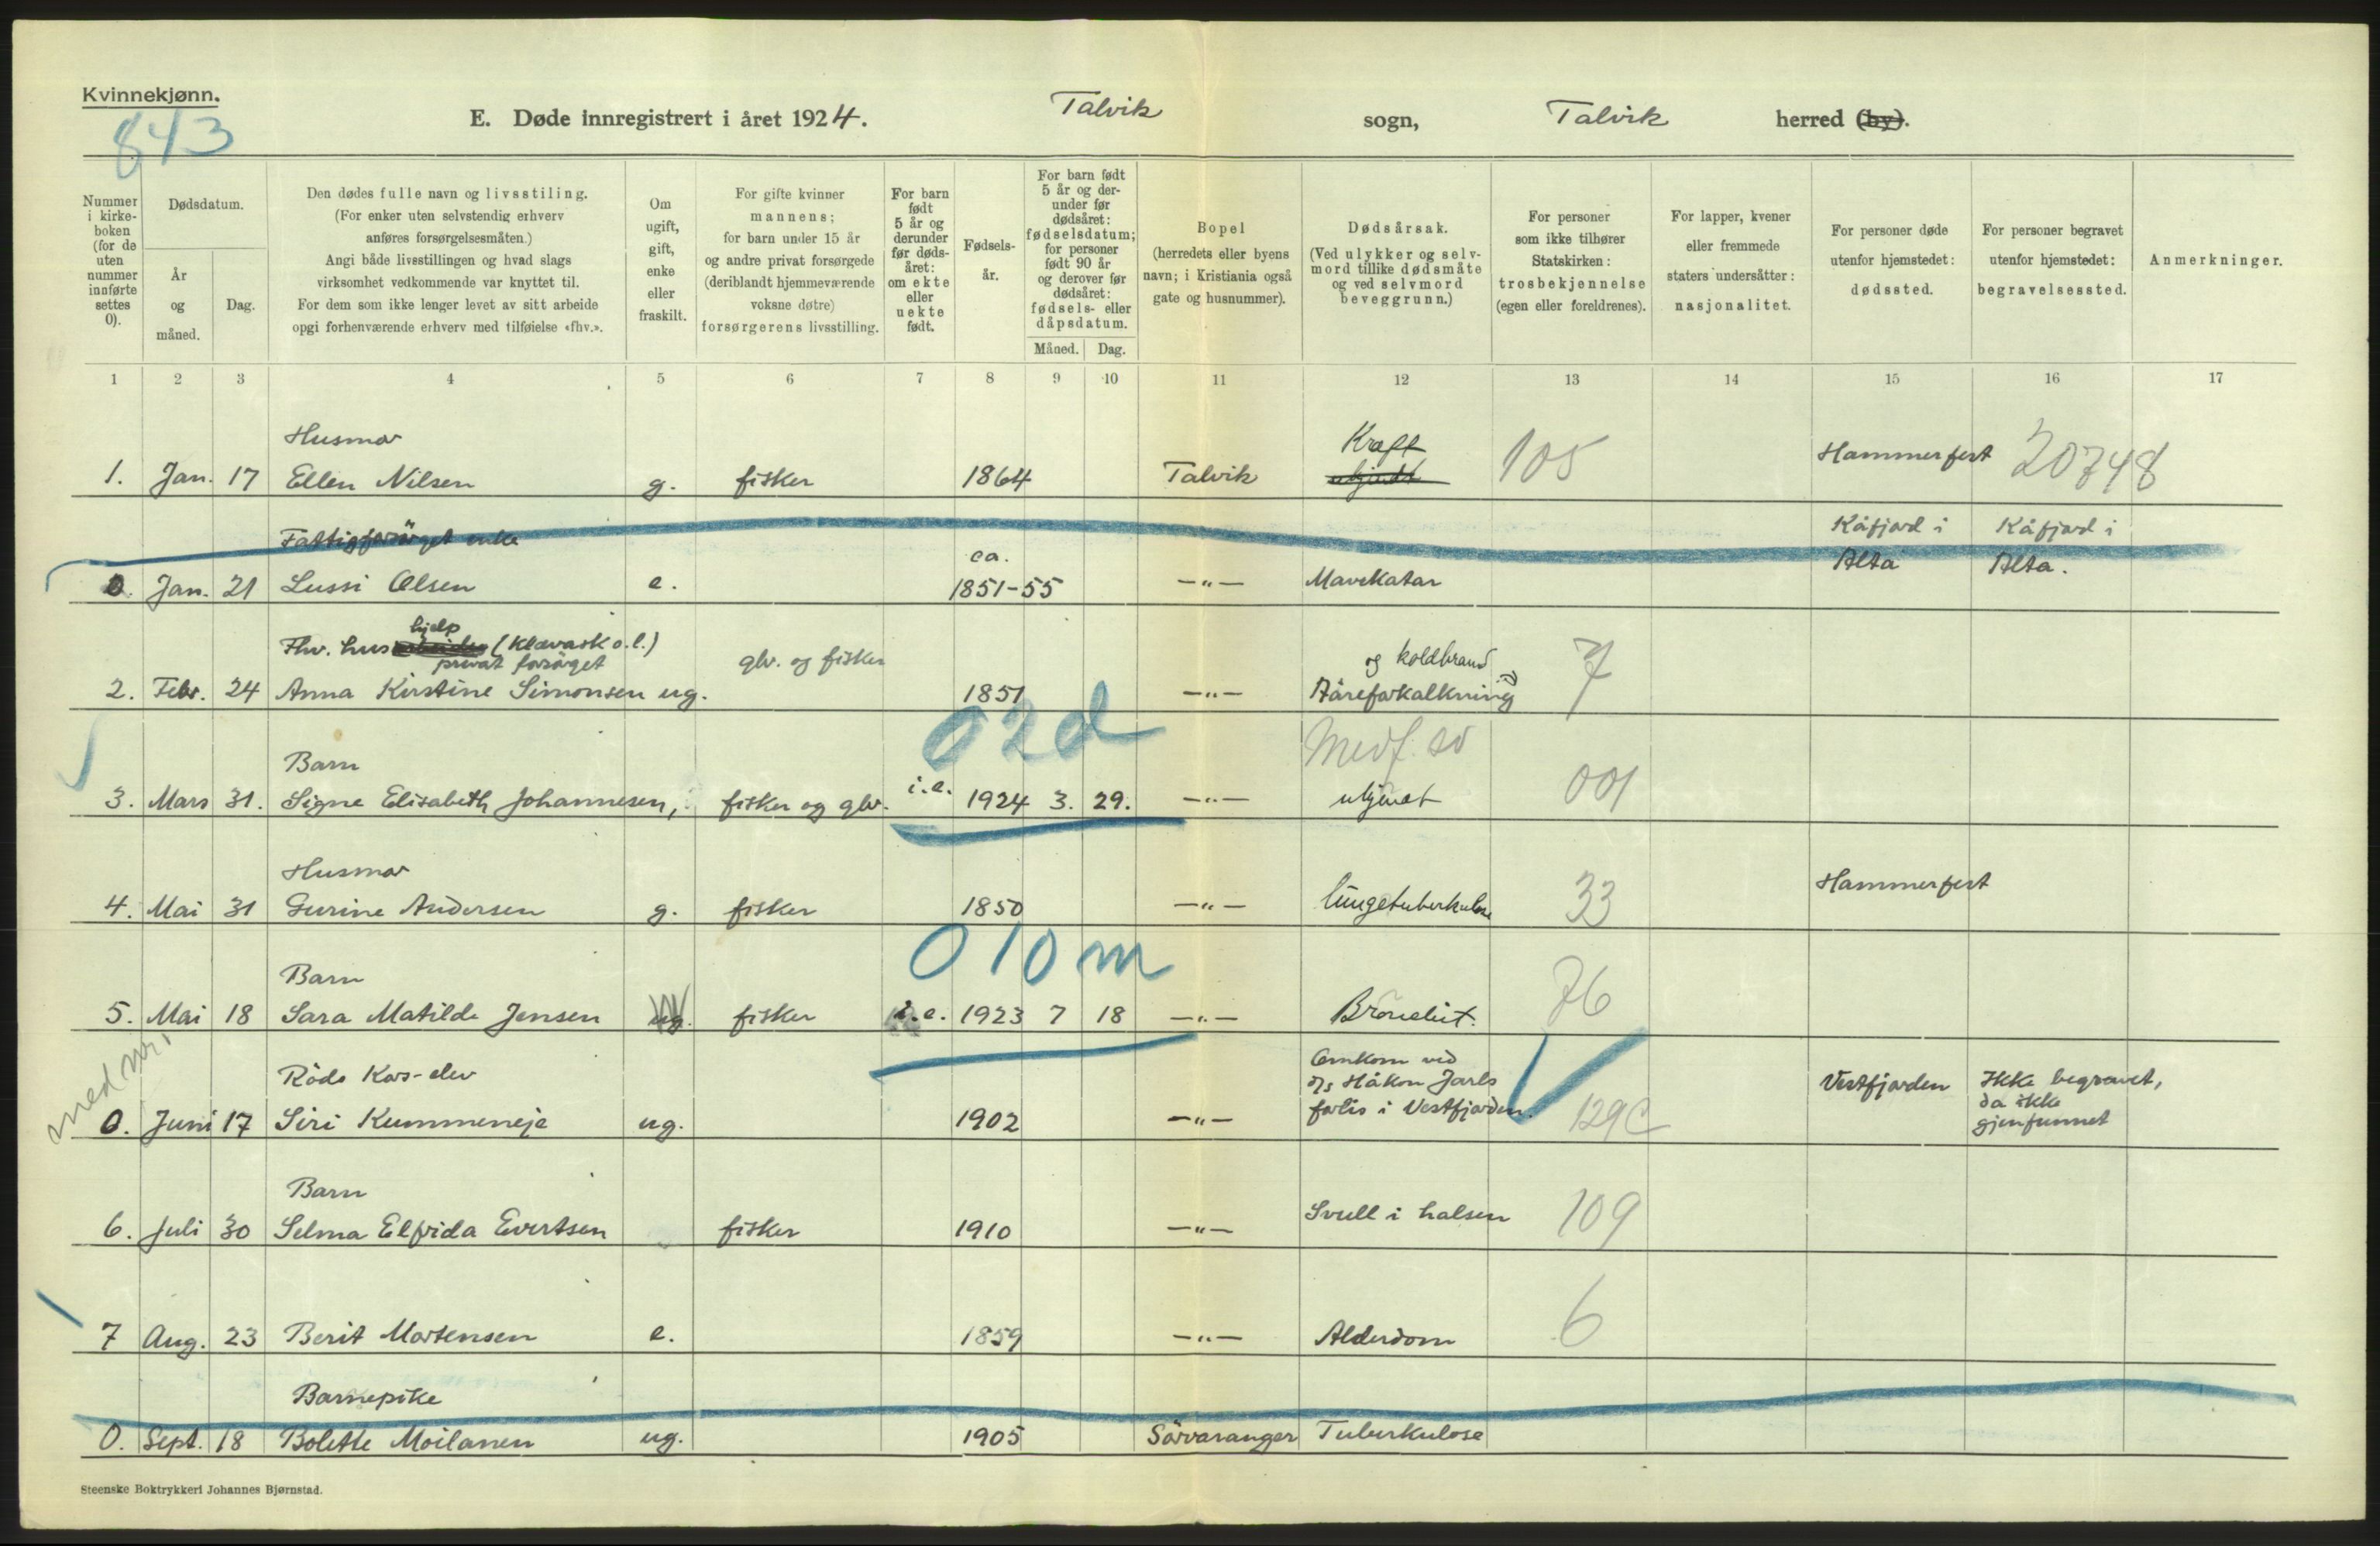 Kvinnekjønn.
843
E. Døde innregistrert i året 1924. Talvik sogn, Talvik herred (by).
Nummer i kirkeboken (for de uten nummer innførte settes 0).
Dødsdatum.
År og måned.
Dag.
Den dødes fulle navn og livsstiling.
(For enker uten selvstendig erhverv
anføres forsørgelsesmåten.)
Angi både livsstillingen og hvad slags
virksomhet vedkommende var knyttet til.
For dem som ikke lenger levet av sitt arbeide
opgi forhenværende erhverv med tilføielse «fhv.».
Om
ugift,
gift,
enke
eller
fraskilt.
For gifte kvinner
mannens;
for barn under 15 år
og andre privat forsørgede
(deriblandt hjemmeværende
voksne døtre)
forsørgerens livsstilling.
For barn
født
5 år og
derunder
før døds-
året:
om ekte
eller
uekte
født.
Fødsels-
år.
For barn født
5 år og der-
under før
dødsåret:
fødselsdatum;
for personer
født 90 år
og derover før
dødsåret:
fødsels- eller
dåpsdatum.
Måned. Dag.
Bopel
(herredets eller byens
navn; i Kristiania også
gate og husnummer).
Dødsårsak.
(Ved ulykker og selv-
mord tillike dødsmåte
og ved selvmord
beveggrunn.)
For personer
som ikke tilhører
Statskirken:
trosbekjennelse
(egen eller foreldrenes).
For lapper, kvener
eller fremmede
staters undersåtter:
nasjonalitet.
For personer døde
utenfor hjemstedet:
dødssted.
For personer begravet
utenfor hjemstedet:
begravelsessted.
Anmerkninger.
1 2 3 4 5 6 7 8 9 10 11 12 13 14 15 16 17
Husmor Kræft
1. Jan. 17 Ellen Nilsen g. fisker 1864 Talvik ukjendt 105 Hammerfest 20748
Fattigforsörget enke ca. Kåfjord i Kåfjord i
0. Jan. 21 Lussi Olsen e. 1851-55 —"— Mavekatar Alta Alta.
hjelp
Fhv. hus (Klævask o.l.)
privat forsörget glv. og fisker og koldbrand
2. Febr. 24 Anna Kirstine Simonsen ug. 1851 —"— Åreforkalkning 7
02d Medf. sv
Barn
3. Mars 31. Signe Elisabeth Johannesen, fisker og glv. i.e. 1924 3. 29. —"— ukjendt 001
Husmor
4. Mai 31 Gurine Andersen g. fisker 1850 —"— lungetuberkulose 33 Hammerfest
010m
Barn
5. Mai 18 Sara Matilde Jensen ug. fisker i.e. 1923 7 18 —"— Bronchit. 76
med nr.
Röde Kors-elev Omkom ved
d/s Håkon Jarls Vestfjorden Ikke begravet,
0. Juni 17 Siri Kummeneje ug. 1902 —"— forlis i Vestfjorden. 129C da ikke
gjenfunnet
Barn
6. Juli 30 Selma Elfrida Evertsen fisker 1910 —"— Svull i halsen 109
7 Aug. 23 Berit Mortensen e. 1859 —"— Alderdom 6
Barnepike
0. Sept. 18 Bolette Moilanen ug. 1905 Sörvaranger Tuberkulose
Steenske Boktrykkeri Johannes Bjørnstad.